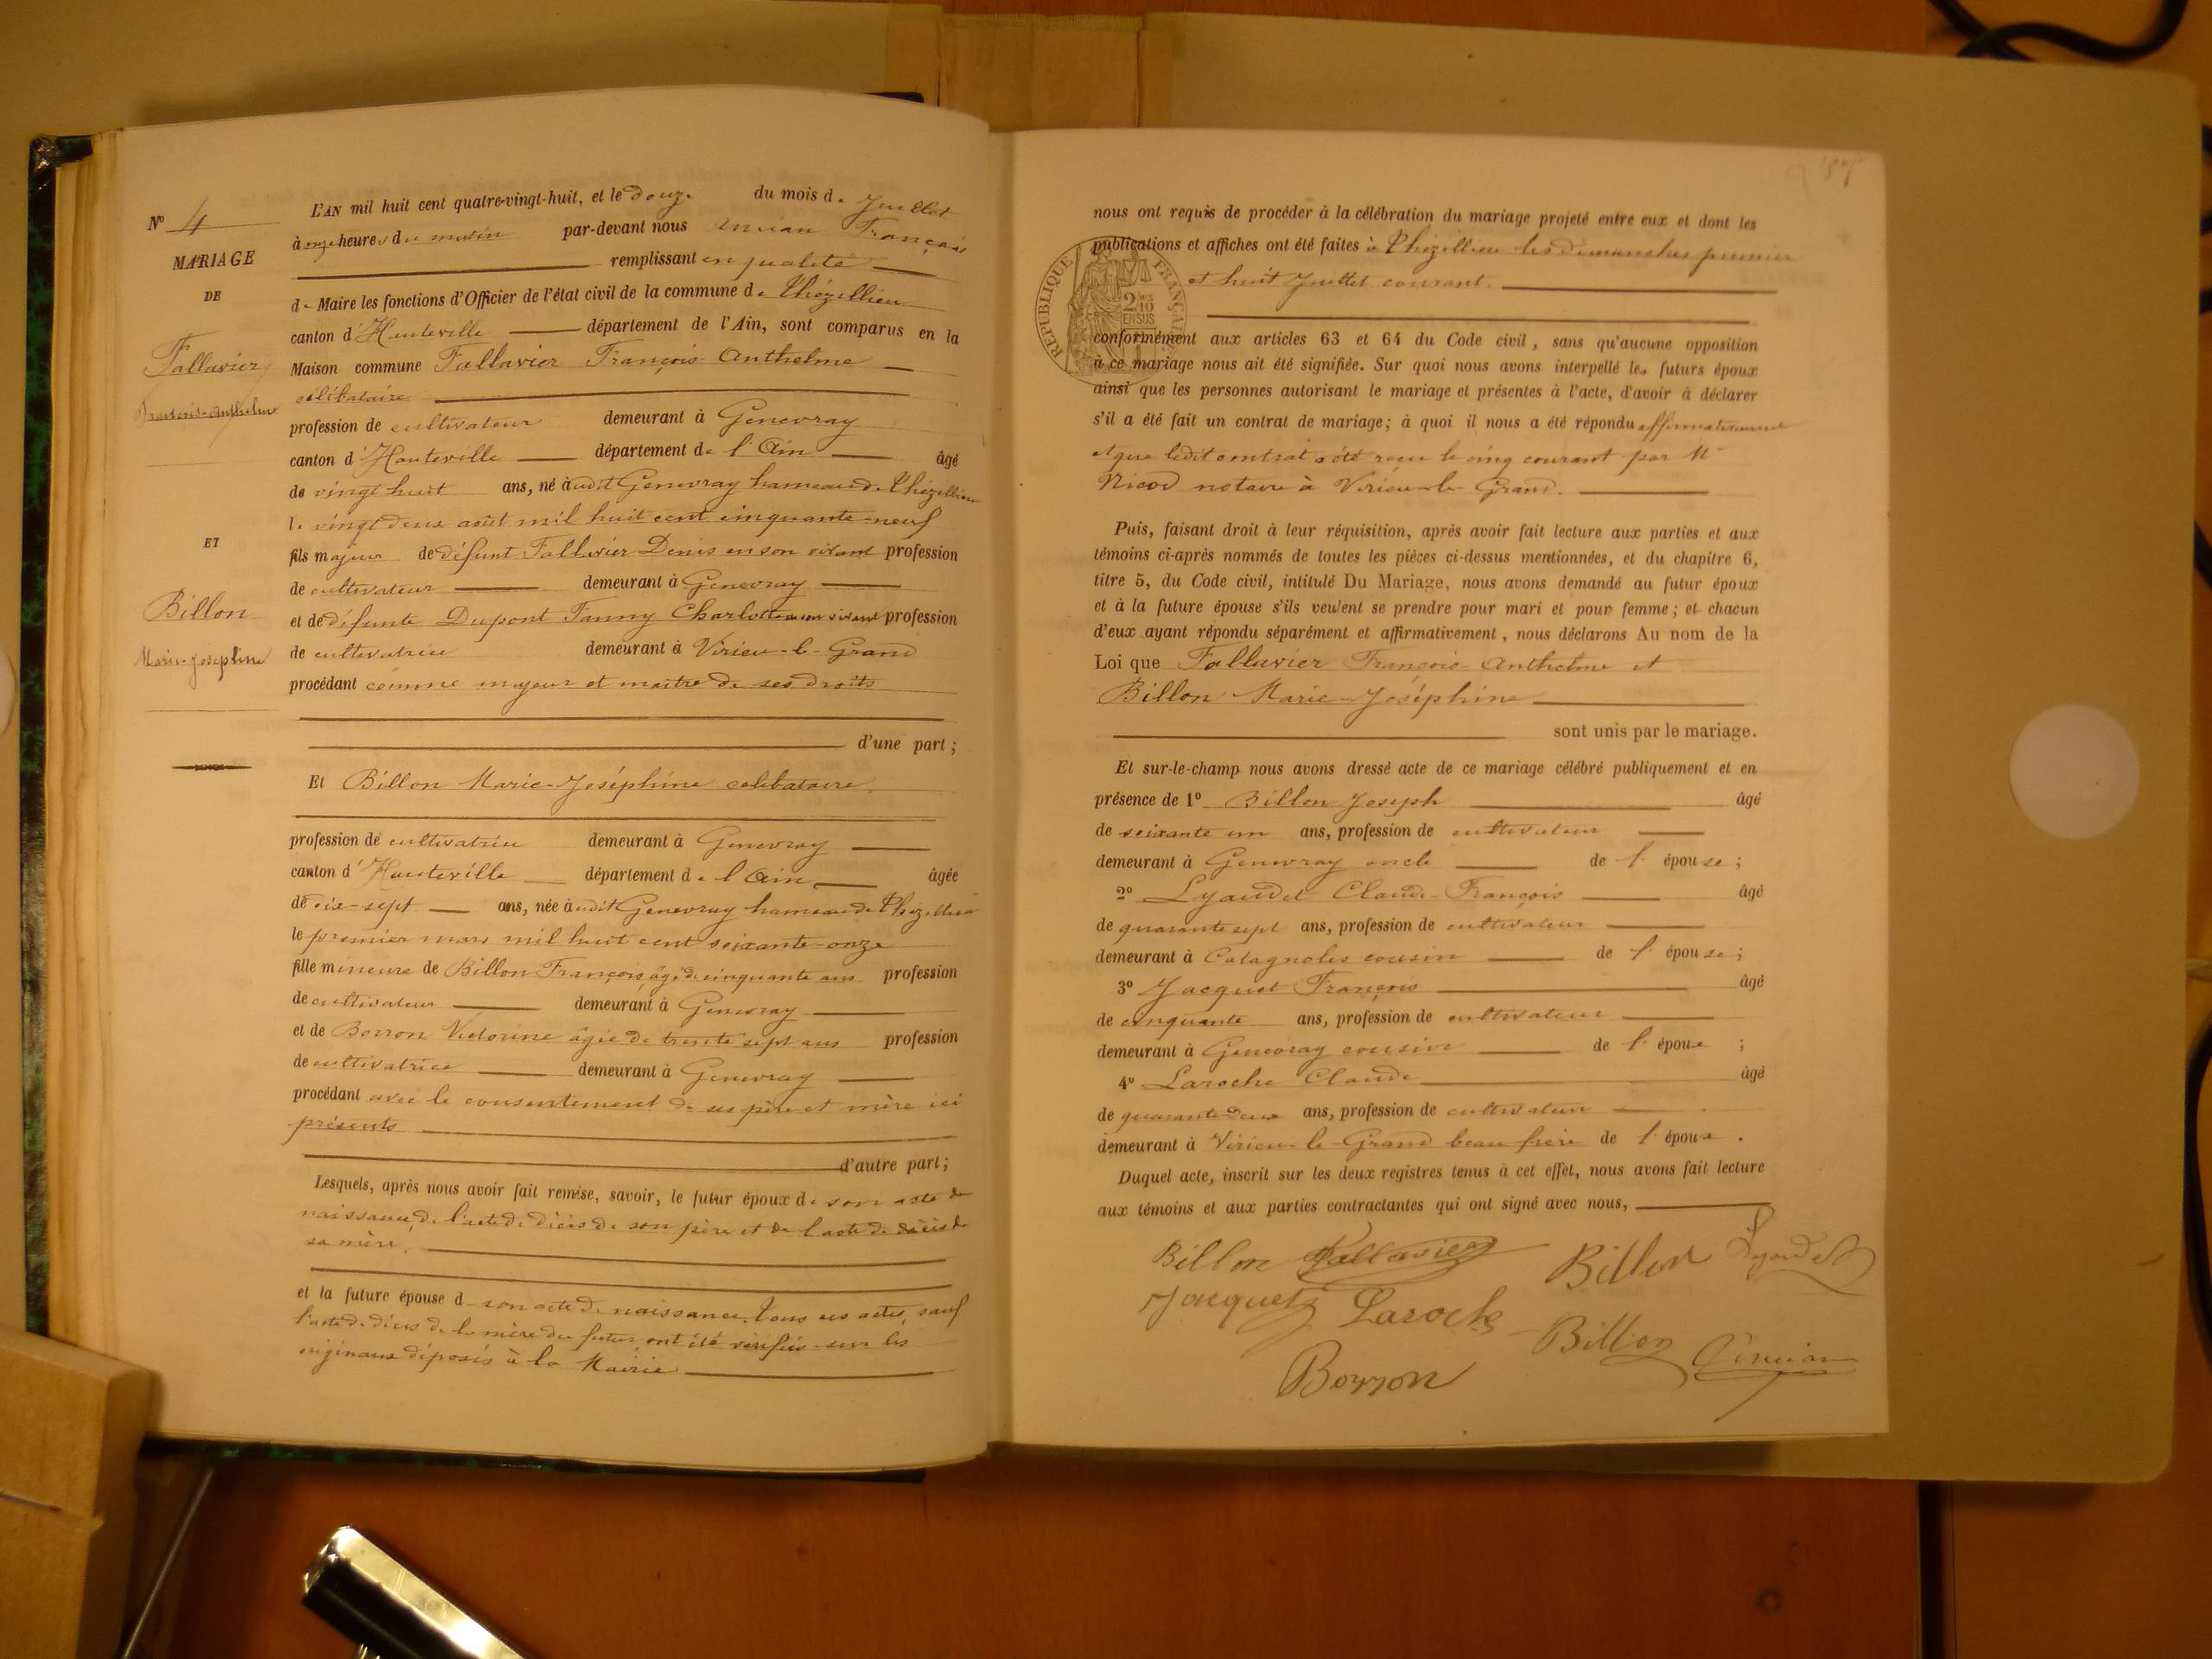 N° 4
MARIAGE
DE
Fallavier
François-Anthelme
ET
Billon
Marie-Joséphine
L'AN mil huit cent quatre-vingt-huit, et le douze du mois de Juillet
à onze heures du matin par-devant nous François
remplissant en qualité
de Maire les fonctions d'Officier de l'état civil de la commune de Thézillieu
canton d'Hauteville département de l'Ain, sont comparus en la
Maison commune Fallavier François-Anthelme
célibataire
profession de cultivateur demeurant à Genevray
canton d'Hauteville département de l'Ain âgé
de vingt huit ans, né audit Genevray hameau de Thézillieu
le vingt deux août mil huit cent cinquante-neuf
fils majeur de défunt Fallavier Denis en son vivant profession
de cultivateur demeurant à Genevray
et de défunte Dupont Fanny Charlotte en son vivant profession
de cultivatrice demeurant à Virieu-le-Grand
procédant comme majeur et maître de ses droits
d'une part;
Et Billon Marie-Joséphine celibataire
profession de cultivatrice demeurant à Genevray
canton d'Hauteville département de l'Ain âgée
de dix-sept ans, née audit Genevray hameau de Thézillieu
le premier mars mil huit cent soixante-onze
fille mineure de Billon François, âgé de cinquante ans profession
de cultivateur demeurant à Genevray
et de Borron Victorine âgée de trente sept ans profession
de cultivatrice demeurant à Genevray
procédant avec le consentement de ses père et mère ici
présents
d'autre part;
Lesquels, après nous avoir fait remise, savoir, le futur époux de son acte de
naissance, de l'acte de décès de son père et de l'acte de décès de
sa mère,
et la future épouse d son acte de naissance. Tous ces actes, sauf
l'acte de décès de la mère du futur, ont été vérifiés sur les
originaux déposés à la Mairie
nous ont requis de procéder à la célébration du mariage projeté entre eux et dont les
publications et affiches ont été faites à Thézillieu les dimanches premier
et huit Juillet courant.
RÉPUBLIQUE FRANÇAISE
2/10
EN SUS
conformément aux articles 63 et 64 du Code civil, sans qu'aucune opposition
à ce mariage nous ait été signifiée. Sur quoi nous avons interpellé les futurs époux
ainsi que les personnes autorisant le mariage et présentes à l'acte, d'avoir à déclarer
s'il a été fait un contrat de mariage; à quoi il nous a été répondu affirmativement
et que ledit contrat a été reçu le cinq courant par Mr
Nicod notaire à Virieu-le-Grand.
Puis, faisant droit à leur réquisition, après avoir fait lecture aux parties et aux
témoins ci-après nommés de toutes les pièces ci-dessus mentionnées, et du chapitre 6,
titre 5, du Code civil, intitulé Du Mariage, nous avons demandé au futur époux
et à la future épouse s'ils veulent se prendre pour mari et pour femme; et chacun
d'eux ayant répondu séparément et affirmativement, nous déclarons Au nom de la
Loi que Fallavier François-Anthelme et
Billon Marie-Joséphine
sont unis par le mariage.
Et sur-le-champ nous avons dressé acte de ce mariage célébré publiquement et en
présence de 1° Billon Joseph âgé
de soixante un ans, profession de cultivateur
demeurant à Genevray oncle de l'épouse;
2° Lyaudet Claude-François âgé
de quarante sept ans, profession de cultivateur
demeurant à Catagnoles cousin de l'épouse;
3° Jacquet François âgé
de cinquante ans, profession de cultivateur
demeurant à Genevray cousin de l'époux;
4° Laroche Claude âgé
de quarante-deux ans, profession de cultivateur
demeurant à Virieu-le-Grand beau frère de l'époux.
Duquel acte, inscrit sur les deux registres tenus à cet effet, nous avons fait lecture
aux témoins et aux parties contractantes qui ont signé avec nous,
Billon Fallavier Billon Lyaudet
Jacquet Laroche Billon
Borron